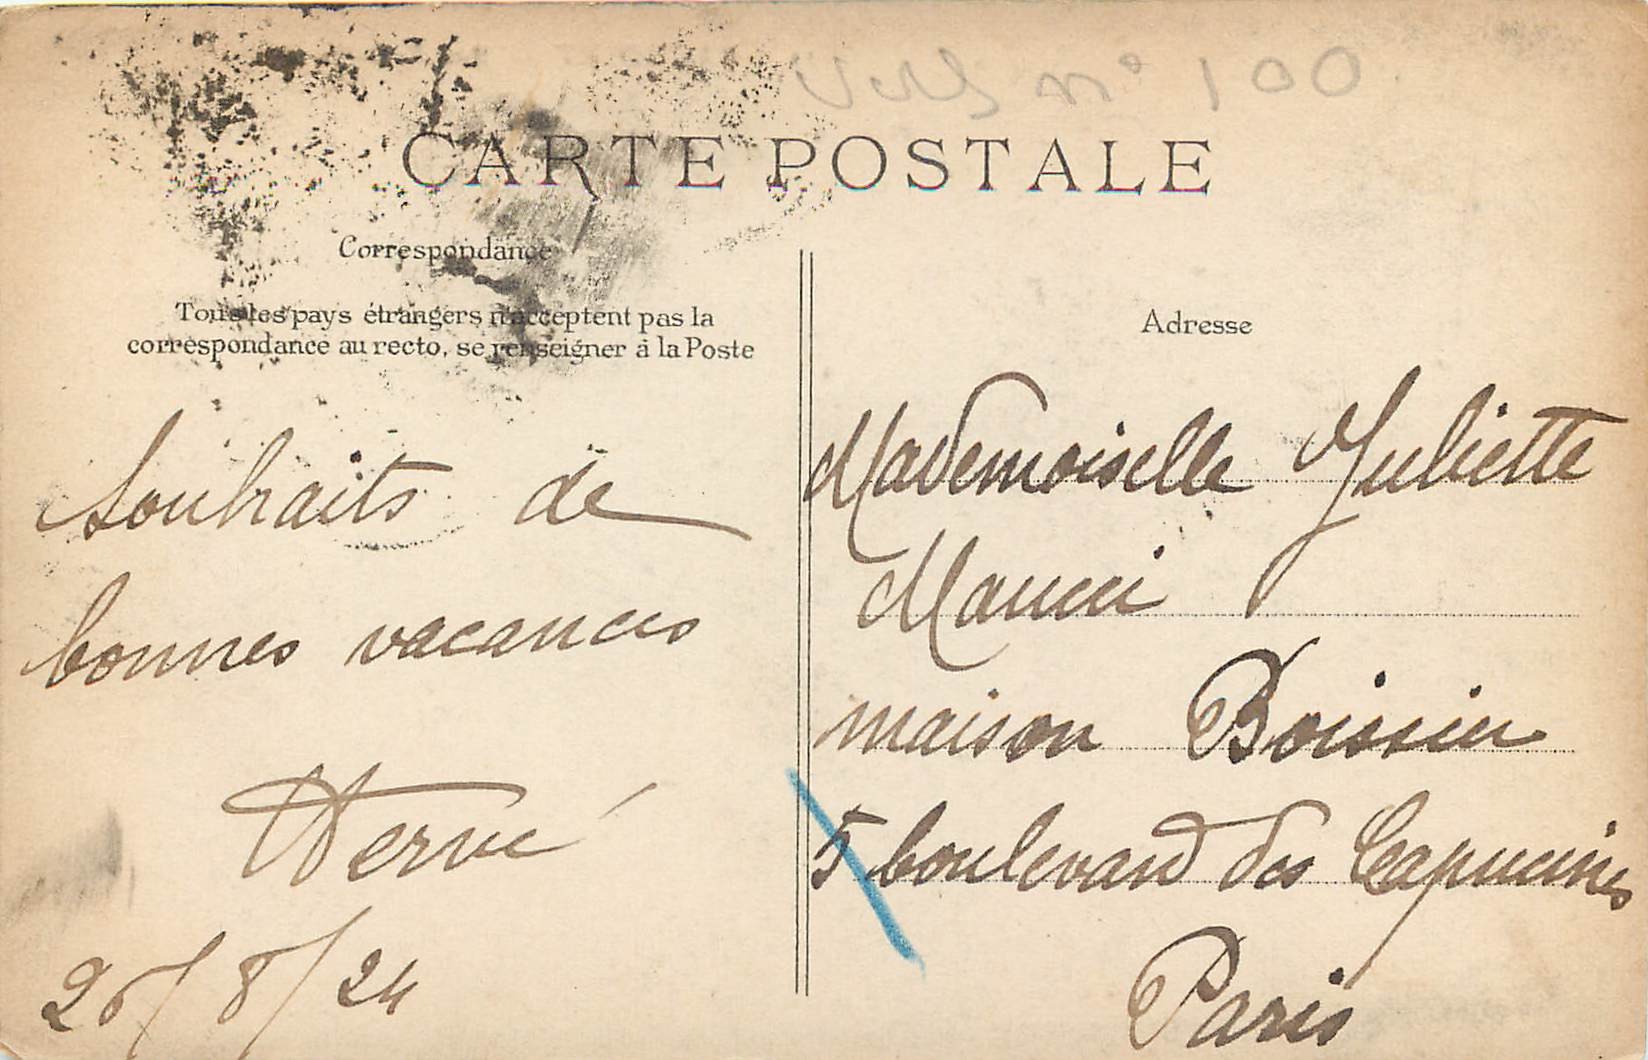 Vers n° 100
CARTE POSTALE
Correspondance
Tous les pays étrangers n'acceptent pas la
correspondance au recto, se renseigner à la Poste
Souhaits de
bonnes vacances
Hervé
/8/24
Adresse
Mademoiselle Juliette
maison Boissier
5 boulevard des Capucines
Paris